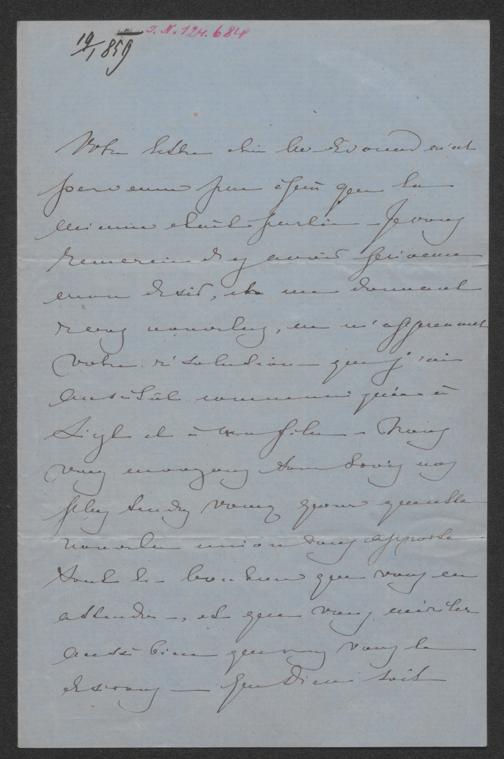 19/1 859 I.N. 124.684
Votre lettre cher Edouard m'est
parvenue que la
mienne était partie – Je vous
remercie d'y avoir
mon désir, et me donnant
nouvelles, en m'apprenant
votre résolution – que j'ai
aussitôt communiquée à
et à ma fille – Nous
vous envoyons tous trois nos
plus tendres voeux pour que cette
nouvelle union vous apporte
tout le bonheur que vous en
attendez –, et que vous méritez
aussi bien que nous vous le
désirons – que Dieu soit